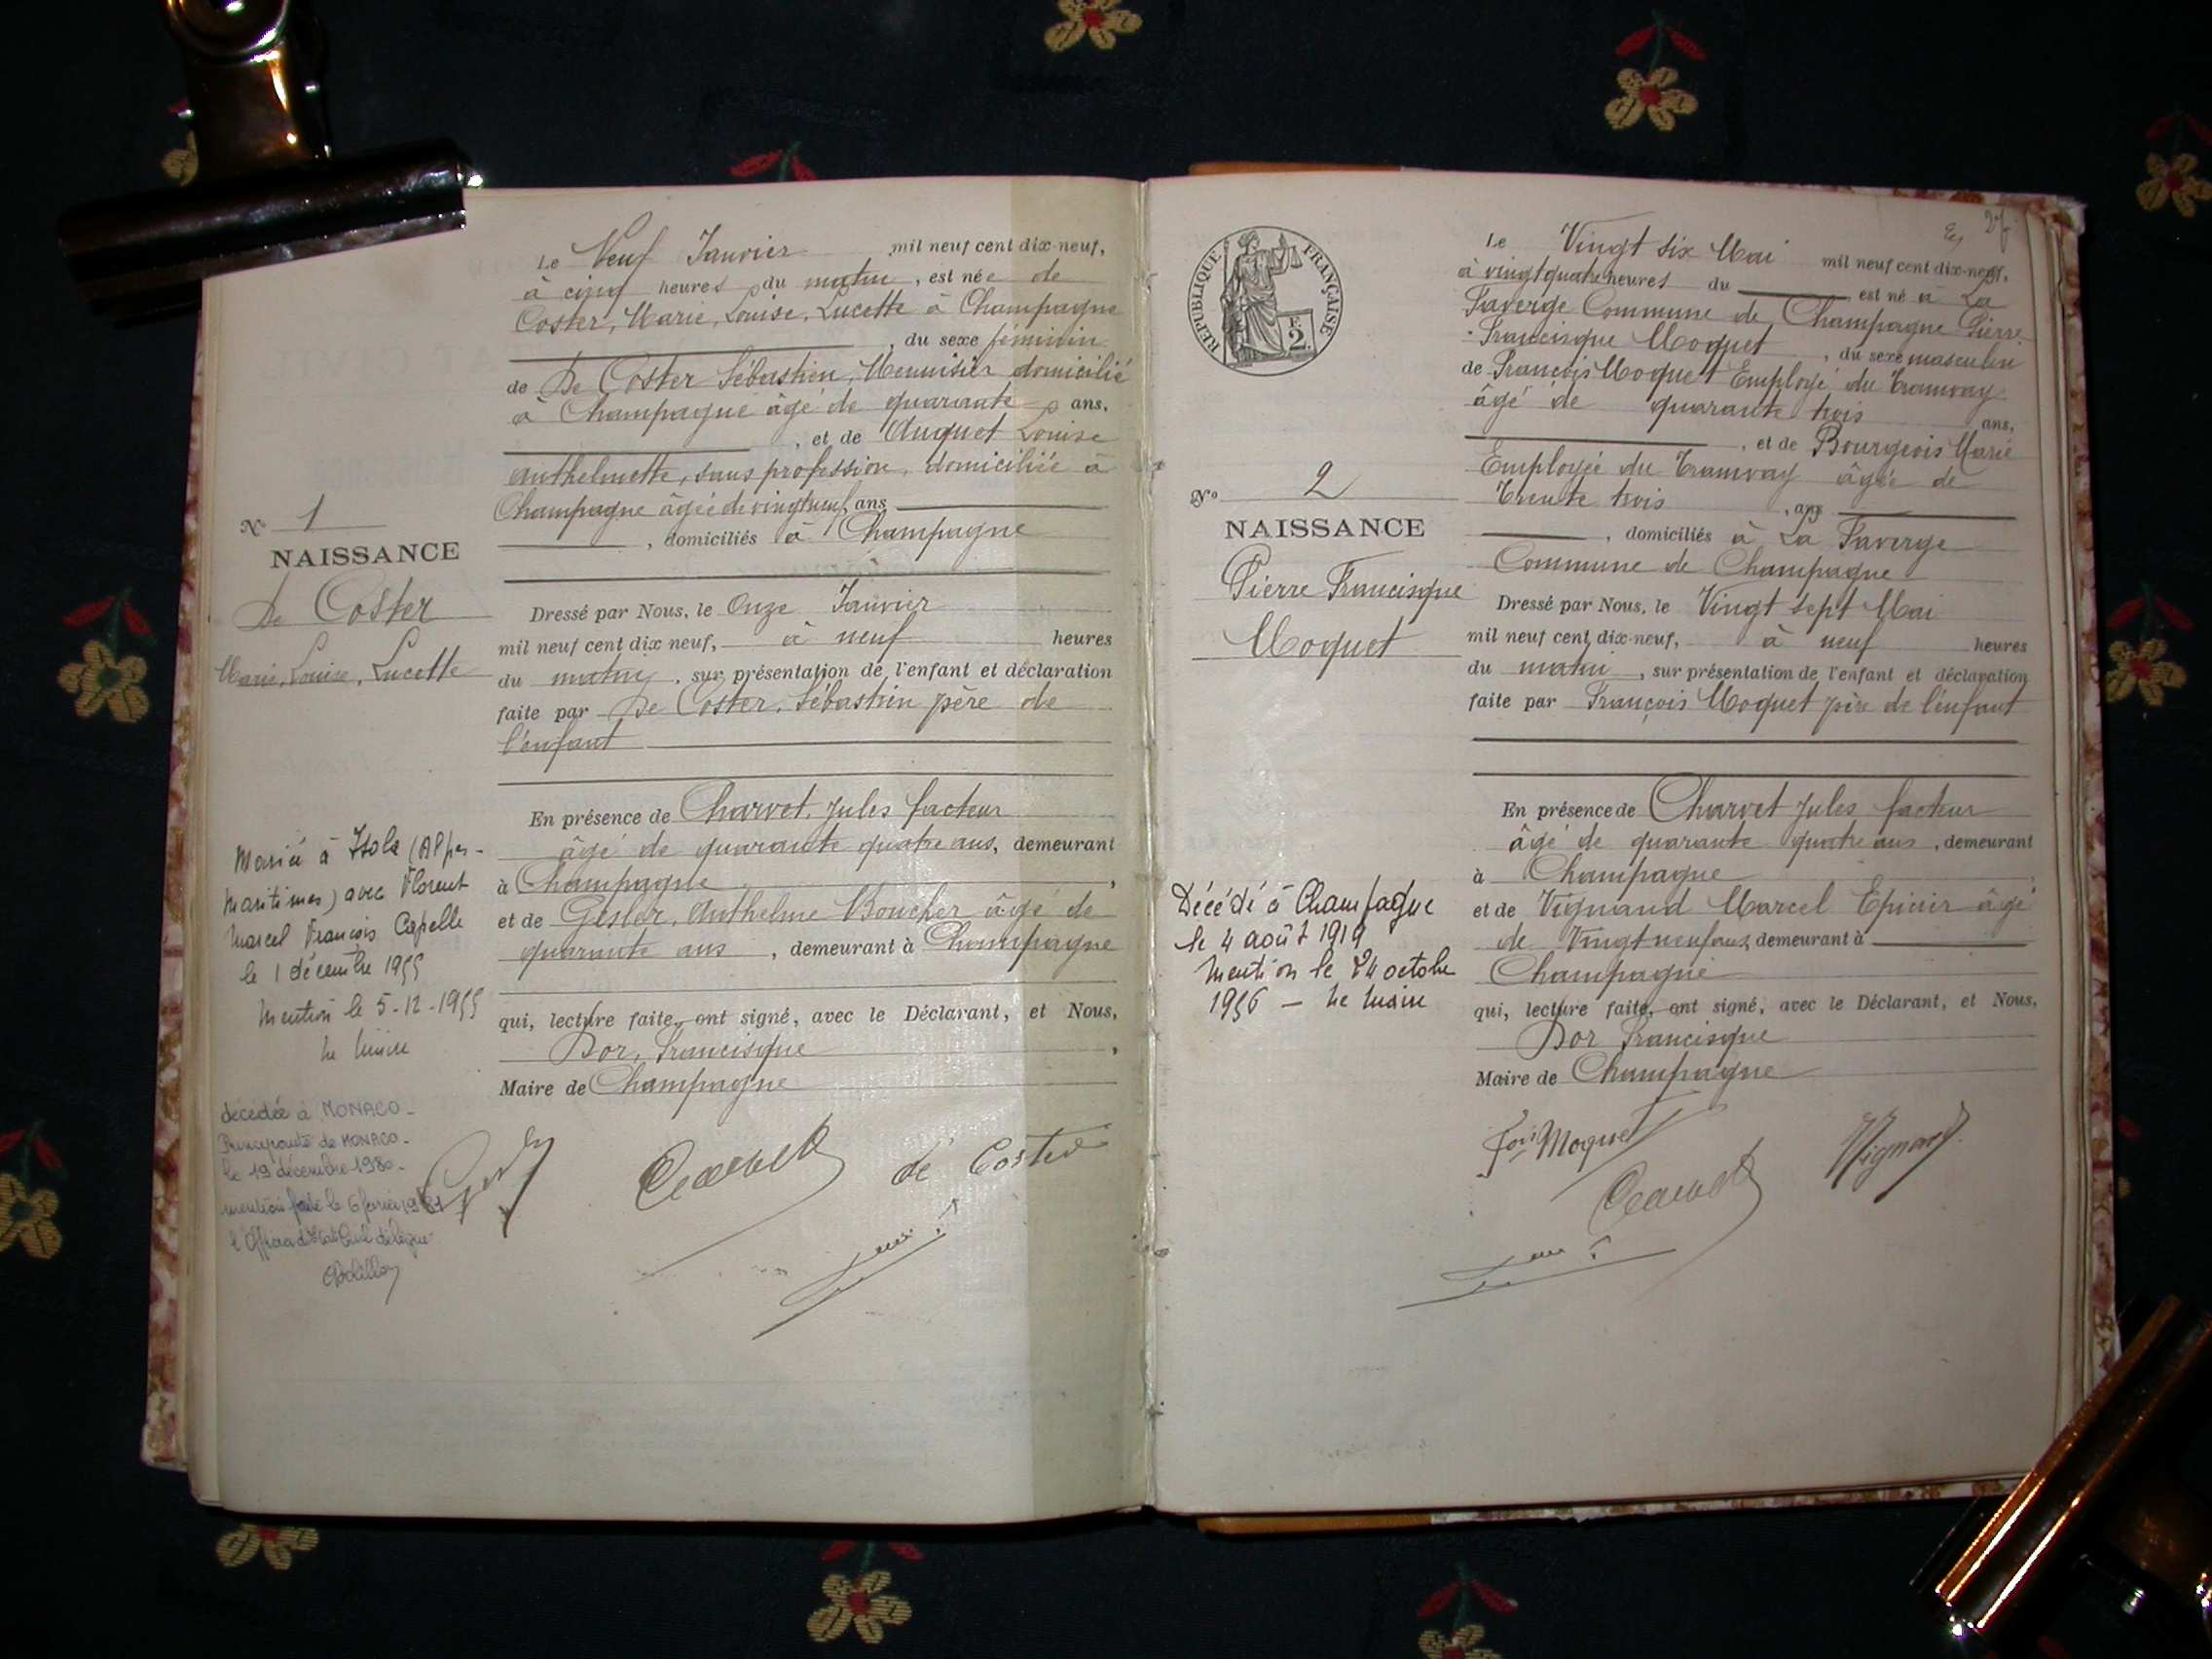 Le Neuf Janvier mil neuf cent dix-neuf,
à cinq heures du matin, est née de
Coster, Marie, Louise, Lucette à Champagne
, du sexe féminin
de De Coster Sébastien, Menuisier domicilié
à Champagne âgé de quarante ans,
, et de Auguet Louise
Anthelmette, sans profession, domiciliée à
Champagne âgée de vingt neuf ans
, domiciliés à Champagne
N° 1
NAISSANCE
De Coster
Marie, Louise, Lucette
Dressé par Nous, le Onze Janvier
mil neuf cent dix neuf, à neuf heures
du matin, sur présentation de l'enfant et déclaration
faite par De Coster, Sébastien père de
l'enfant
En présence de Charvet, Jules facteur
âgé de quarante quatre ans, demeurant
à Champagne,
et de Gesler, Anthelme Boucher âgé de
quarante ans, demeurant à Champagne
qui, lecture faite, ont signé, avec le Déclarant, et Nous,
Dor, Francisque,
Maire de Champagne
Mariée à Isola (Alpes-
Maritimes) avec Florent
Marcel François Capelle
le 1 décembre 1955
Mention le 5-12-1955
Le Maire
décédée à MONACO-
Principauté de MONACO-
le 19 décembre 1980-
mention faite le 6 février 1981
l'Officier d'Etat Civil délégué
Charvet de Coster
REPUBLIQUE FRANÇAISE
2
Le Vingt six Mai mil neuf cent dix-neuf,
à vingt quatre heures du est né à La
Faverge Commune de Champagne Pierre
Francisque Moquet, du sexe masculin
de François Moquet Employé du Tramway
âgé de quarante trois ans,
, et de Bourgeois Marie
Employée du Tramway âgée de
Trente trois, ans
, domiciliés à La Faverge
Commune de Champagne
N° 2
NAISSANCE
Pierre Francisque
Moquet
Dressé par Nous, le Vingt sept Mai
mil neuf cent dix-neuf, à neuf heures
du matin, sur présentation de l'enfant et déclaration
faite par François Moquet père de l'enfant
En présence de Charvet Jules facteur
âgé de quarante quatre ans, demeurant
à Champagne,
et de Vignand Marcel Epicier âgé
de Vingt neuf ans, demeurant à
Champagne
qui, lecture faite, ont signé, avec le Déclarant, et Nous,
Dor Francisque
Maire de Champagne
Décédé à Champagne
le 4 août 1919
Mention le 24 octobre
1956 — Le Maire
Fois Moquet Vignand
Charvet